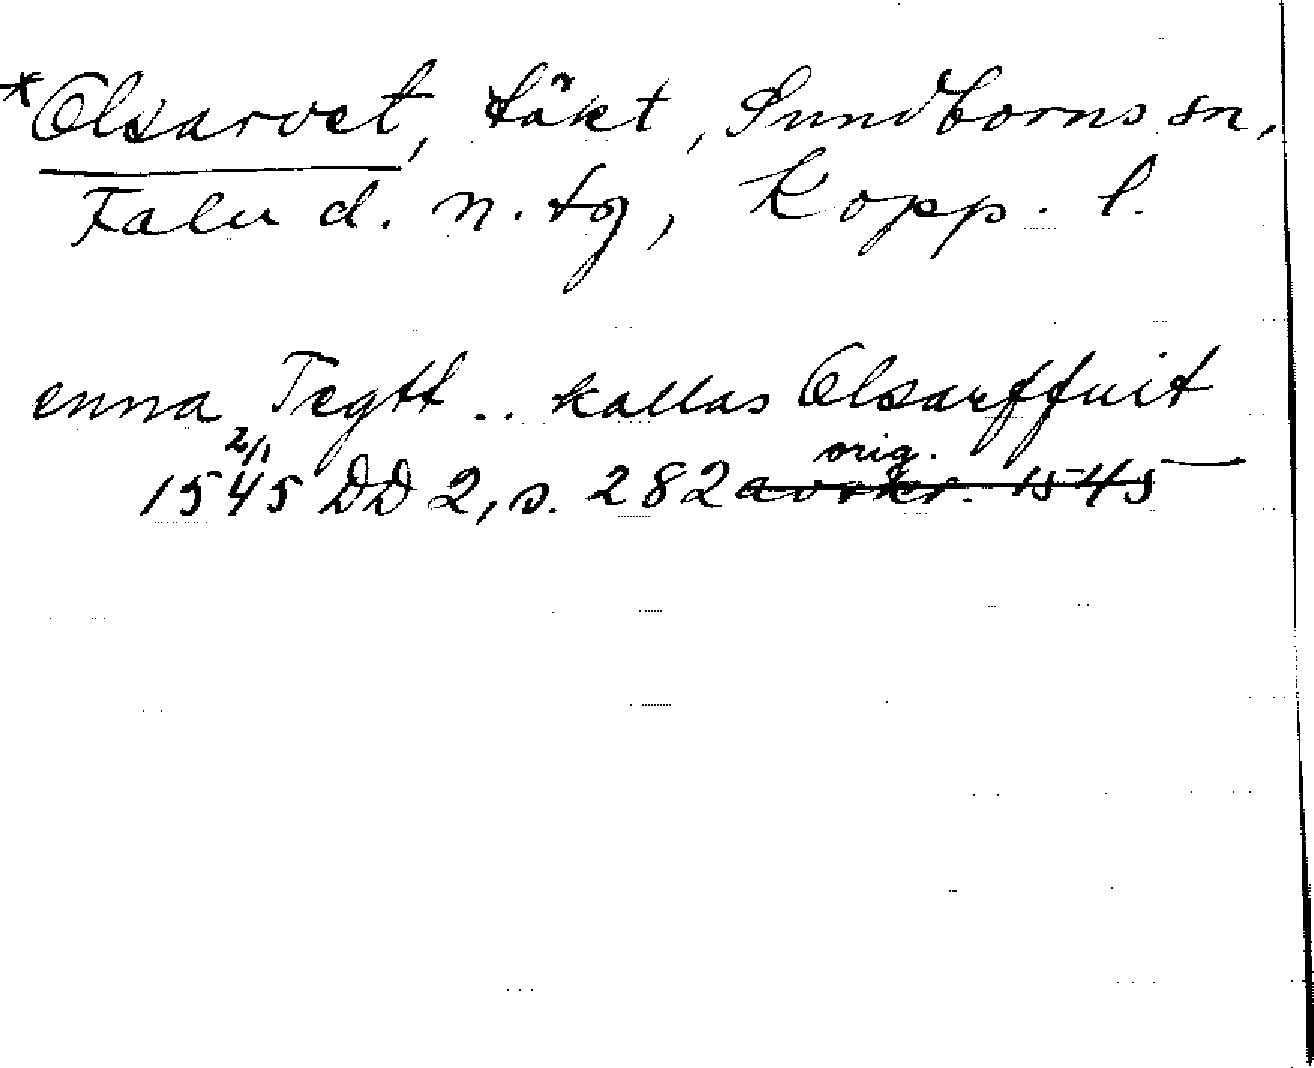 *Olsarvet, täkt, Sundborns sn,
Falu d. n. tg, Kopp. l.
enna Tegtt .. kallas Olsarffuit
2/1 orig.
1545 DD 2, s. 282 avskr. 1545